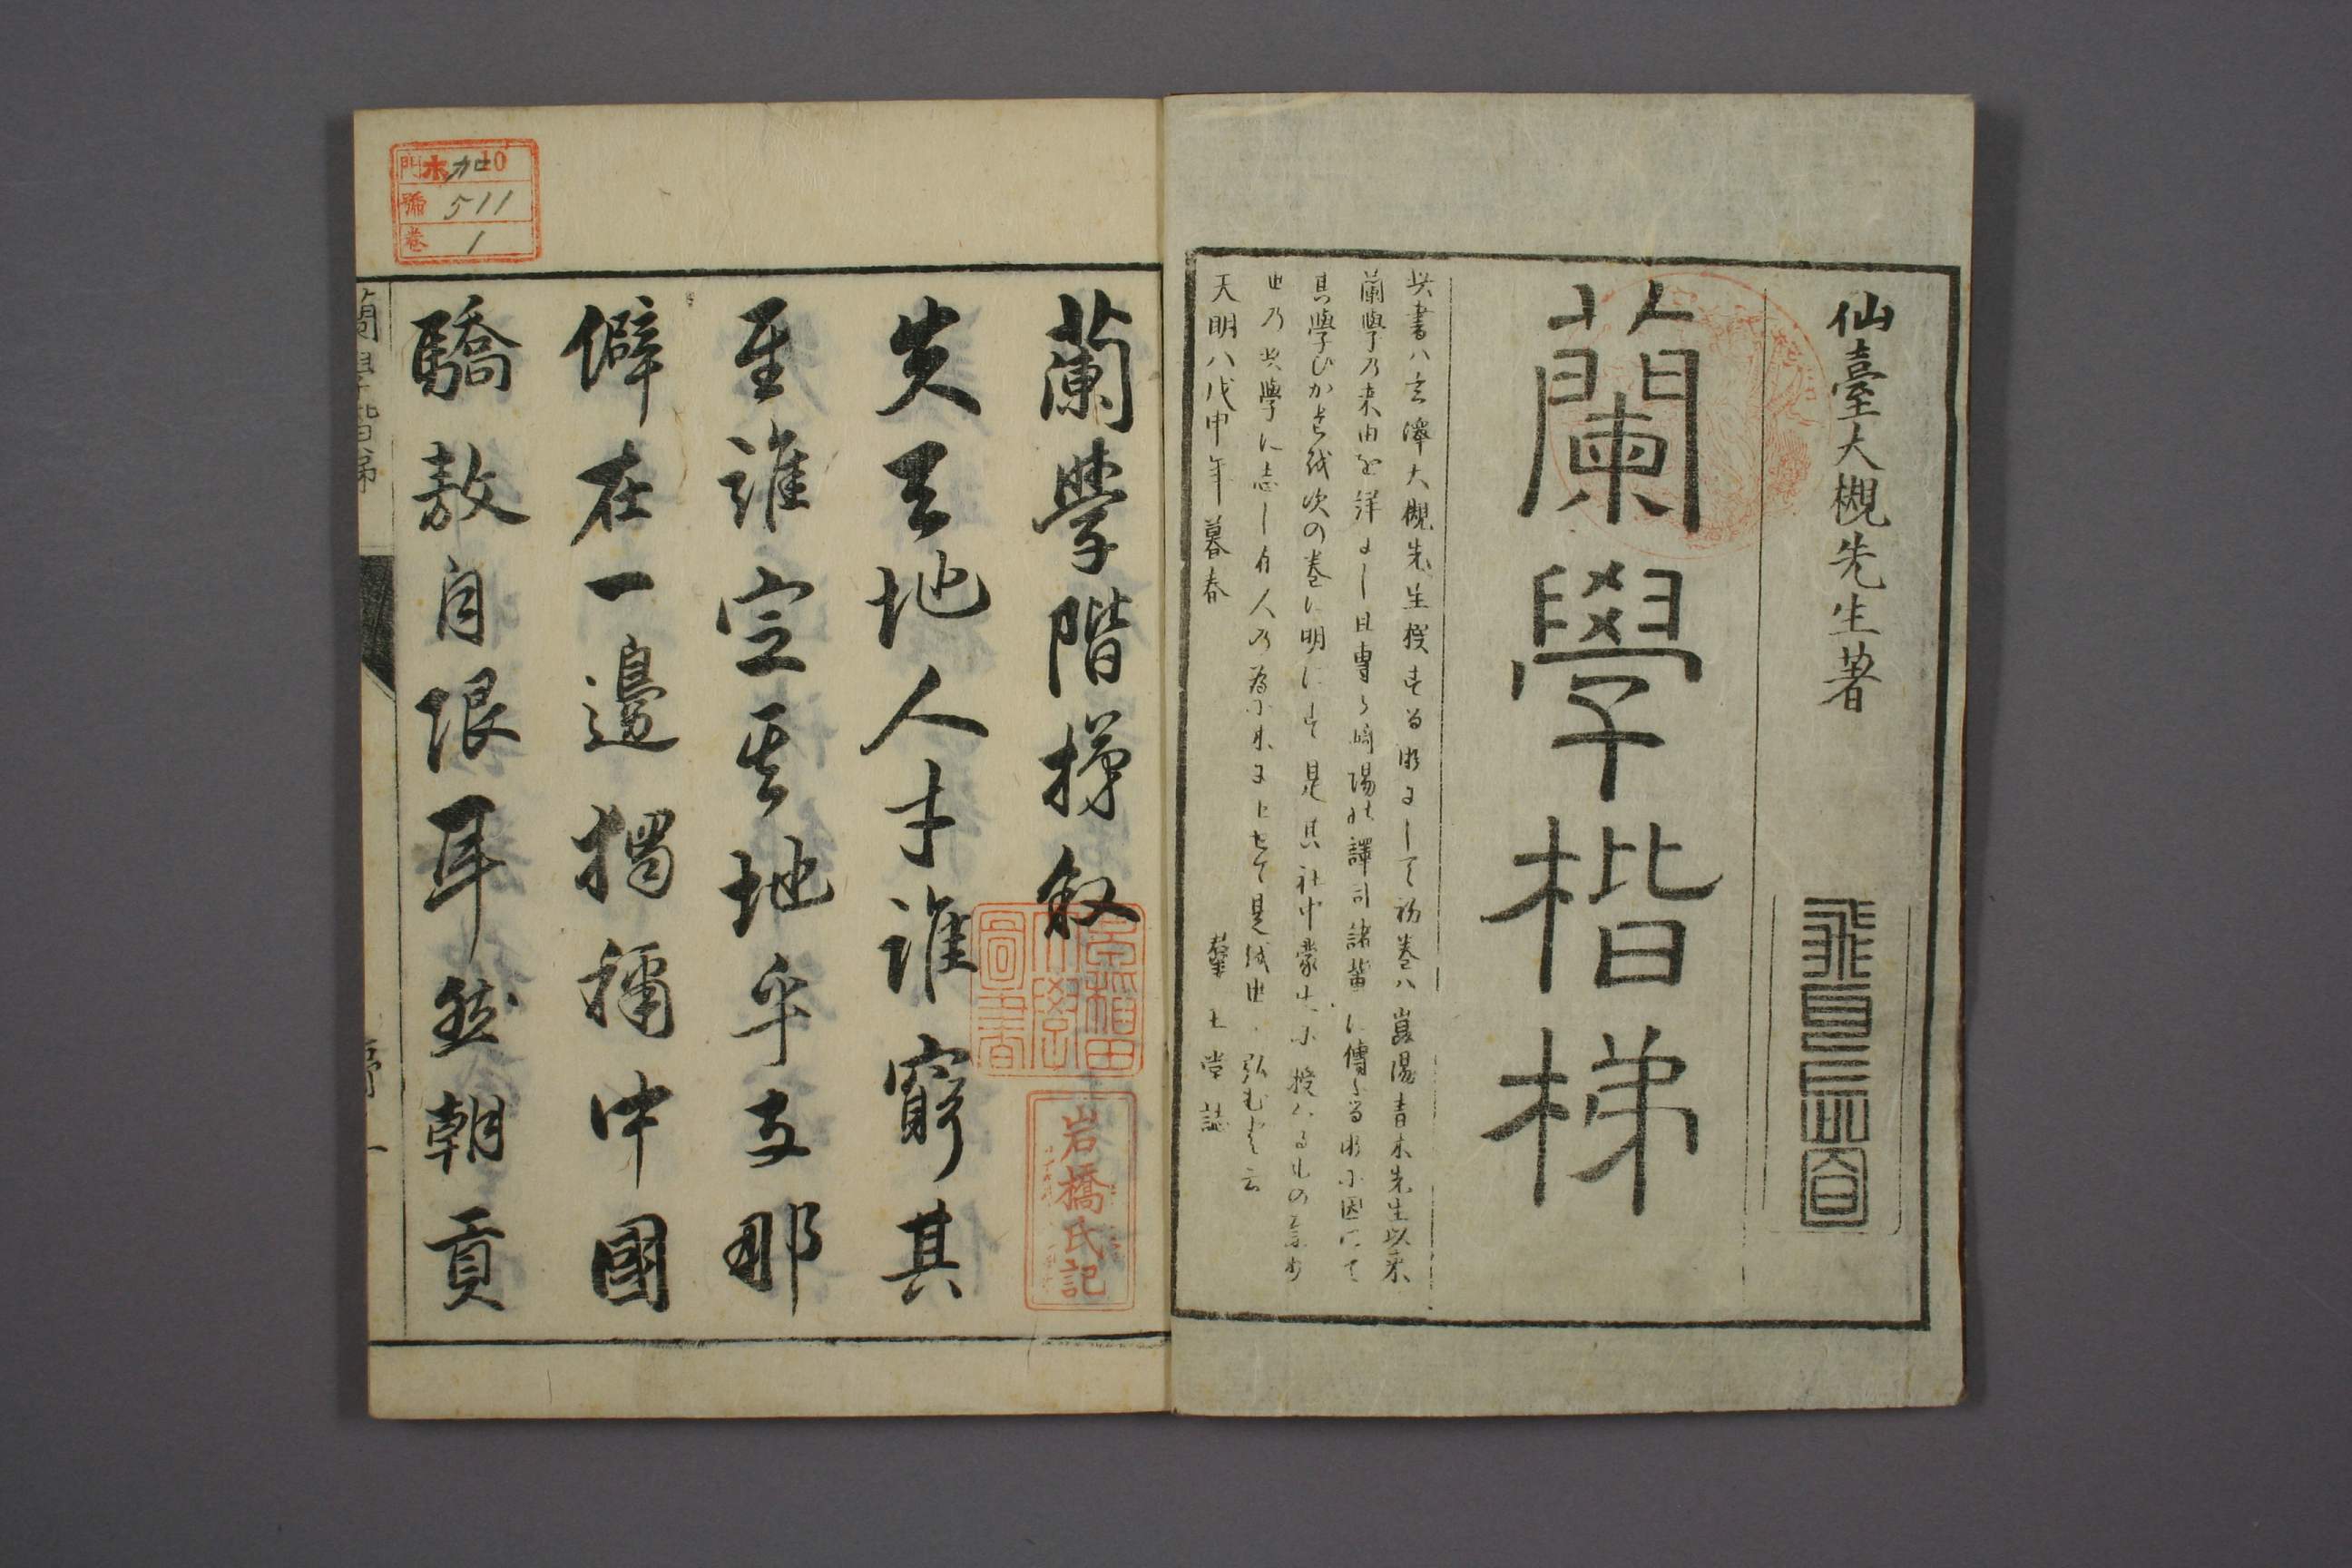 仙臺大槻先生著
蘭學楷梯
此書ハ玄澤大槻先生撰する所にして初巻ハ崑陽青木先生以来
蘭學乃来由を詳にし且專ら崎陽の譯司諸輩に傳ふる所に因にて
其學びかたを次の巻に明にす是其社中蒙士に授くるもの
也乃此學に志し有人の為に木に上せて是を世に弘むと云
天明八戊申年暮春
羣玉堂誌
蘭學階梯叙
矣天地人才誰窮其
至誰定其地乎支那
僻在一邊獨稱中國
驕敖自限耳然朝貢
蘭學階梯
序
一
門 10
加
號 511
巻 1
早稲田
大學
圖書
岩橋氏記